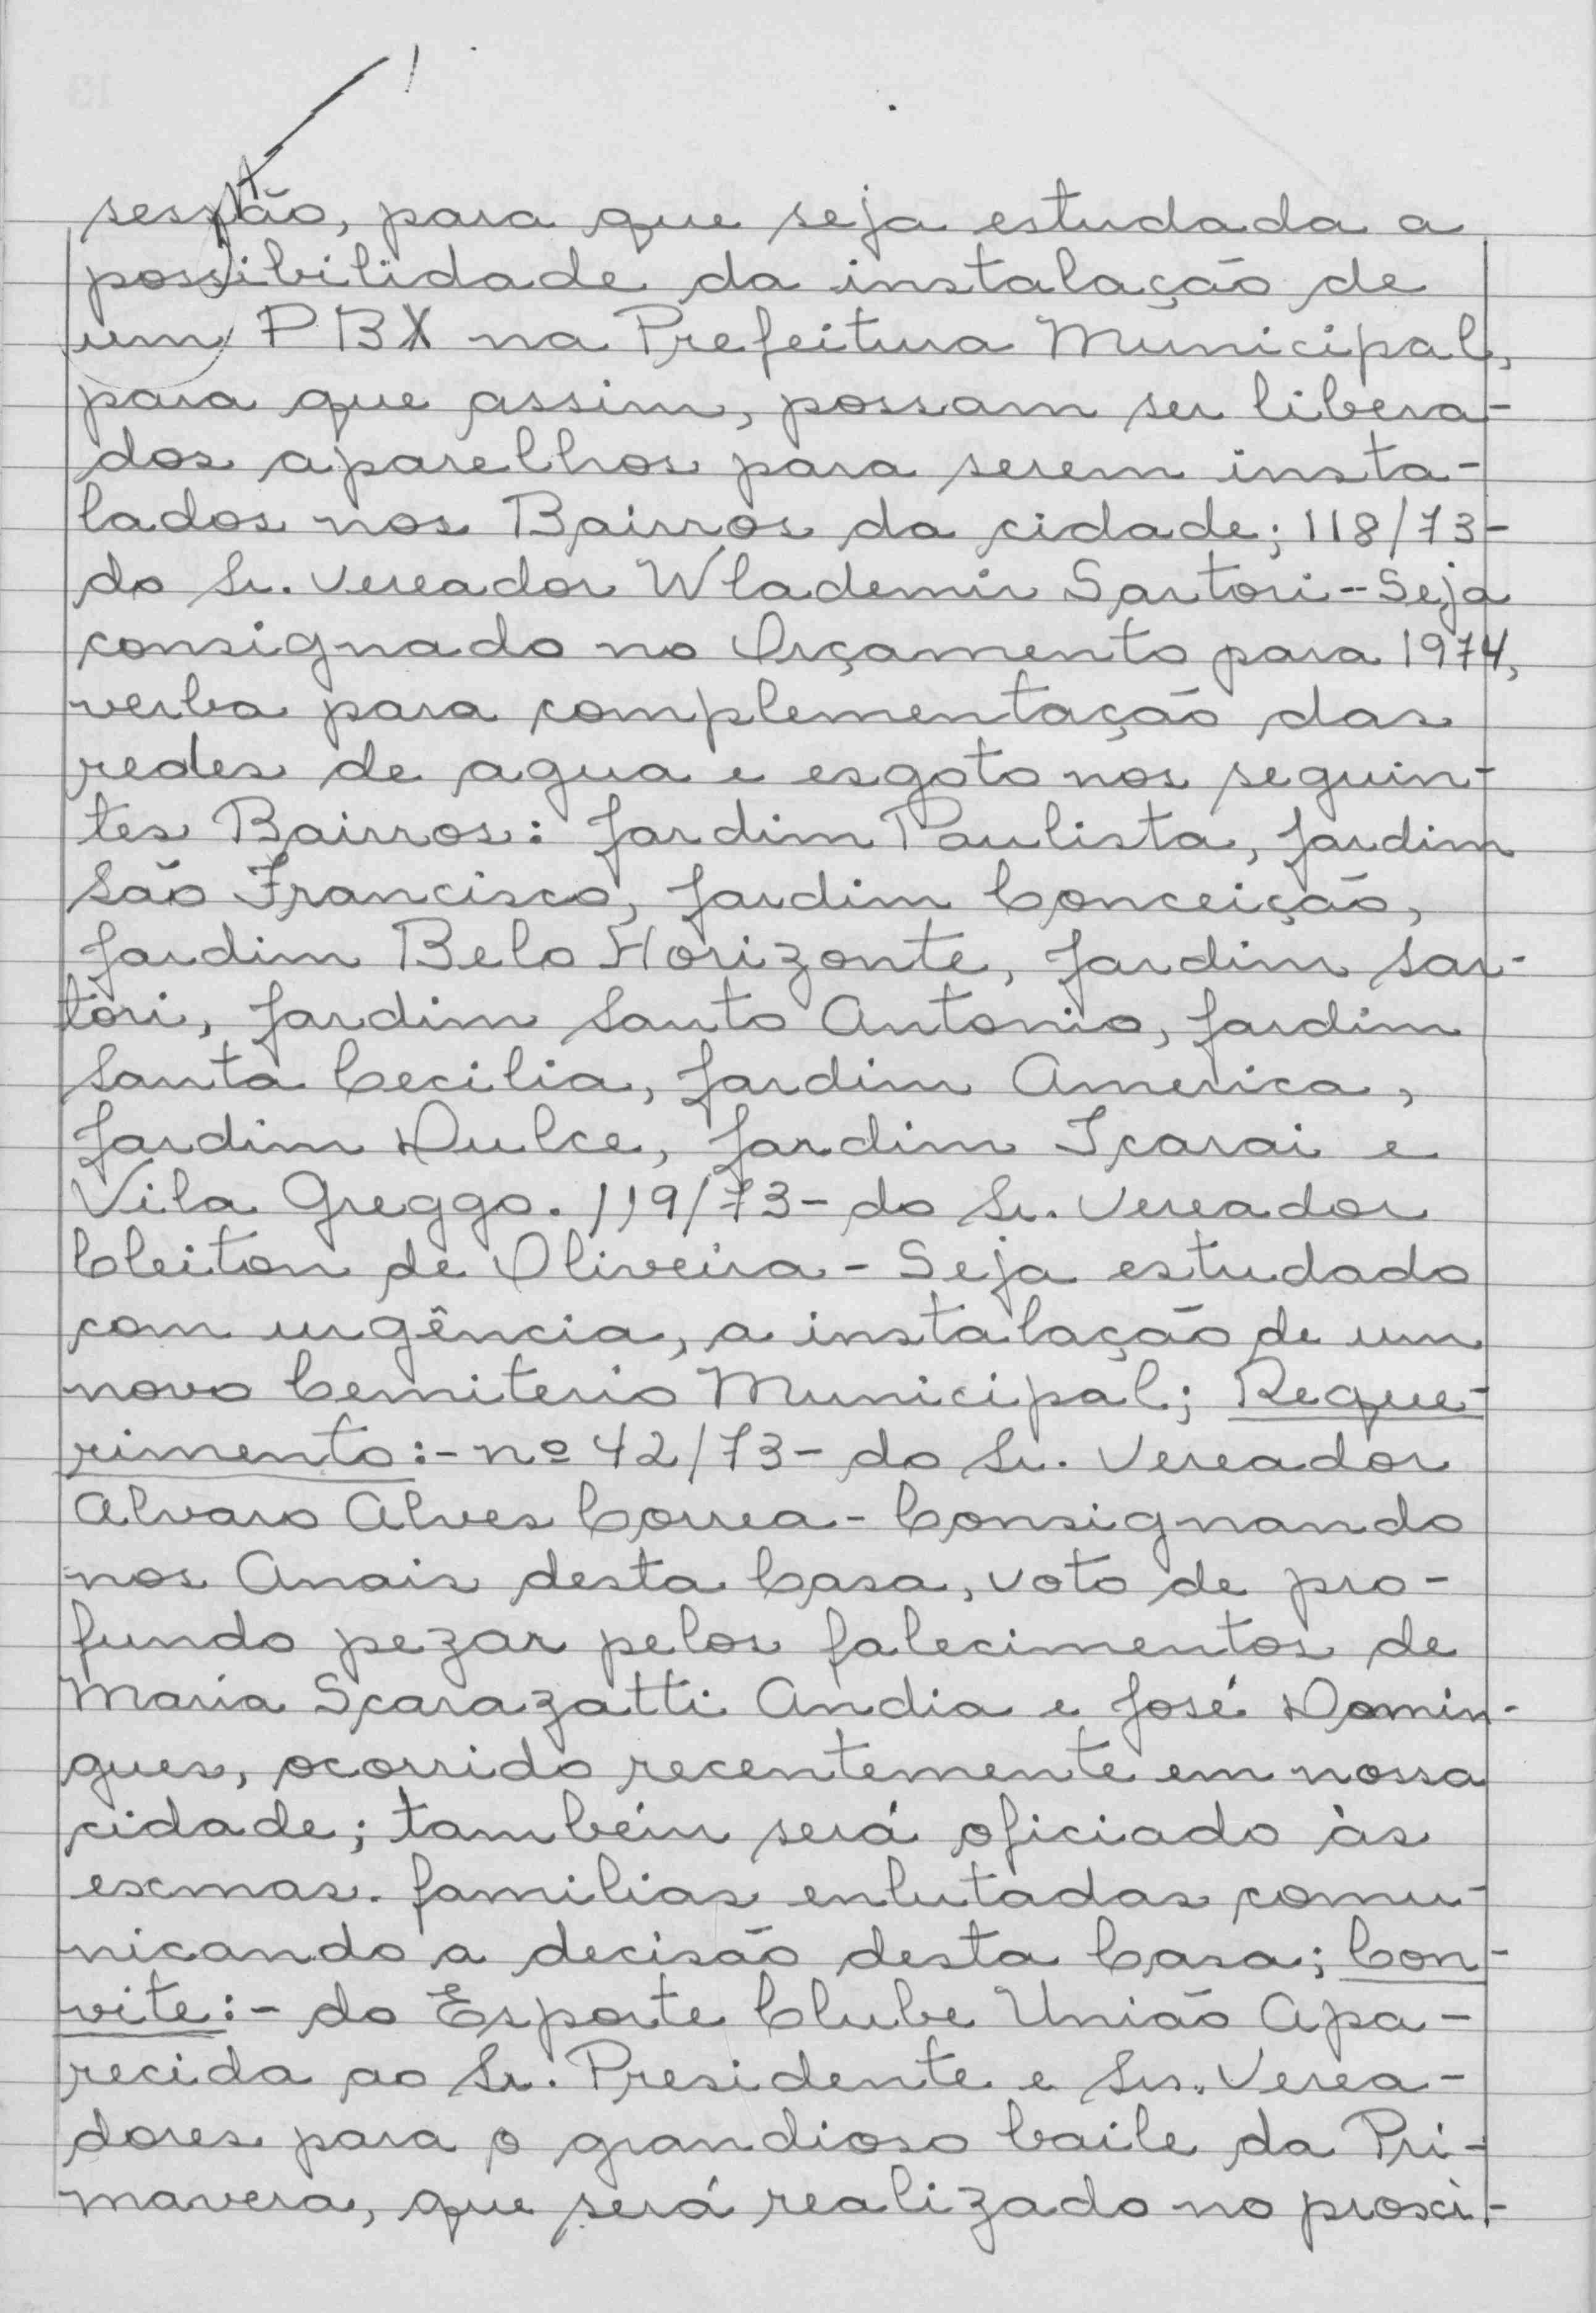 sestão, para que seja estudada a
possibilidade da instalação de
um PBX na Prefeitura Municipal,
para que assim, possam ser libera-
dos aparelhos para serem insta-
lados nos Bairros da cidade; 118/73-
do Sr. Vereador Wlademir Sartori-- Seja
consignado no Orçamento para 1974,
verba para complementação das
redes de agua e esgoto nos seguin-
tes Bairros: Jardim Paulista, Jardim
São Francisco, Jardim Conceição,
Jardim Belo Horizonte, Jardim Sar-
tori, Jardim Santo Antonio, Jardim
Santa Cecilia, Jardim America,
Jardim Dulce, Jardim Icarai e
Vila Greggo. 119/73- do Sr. Vereador
Cleiton de Oliveira - Seja estudado
com urgência, a instalação de um
novo Cemiterio Municipal; Reque-
rimento:- nº 42/73- do Sr. Vereador
Alvaro Alves Correa - Consignando
nos Anais desta Casa, voto de pro-
fundo pezar pelos falecimentos de
Maria Scarazatti Andia e José Domin-
gues, ocorrido recentemente em nossa
cidade; também será oficiado às
exmas. familias enlutadas comu-
nicando a decisão desta Casa; Con-
vite:- do Esporte Clube União Apa-
recida ao Sr. Presidente e Srs. Verea-
dores para o grandioso baile da Pri-
mavera, que será realizado no proxi-